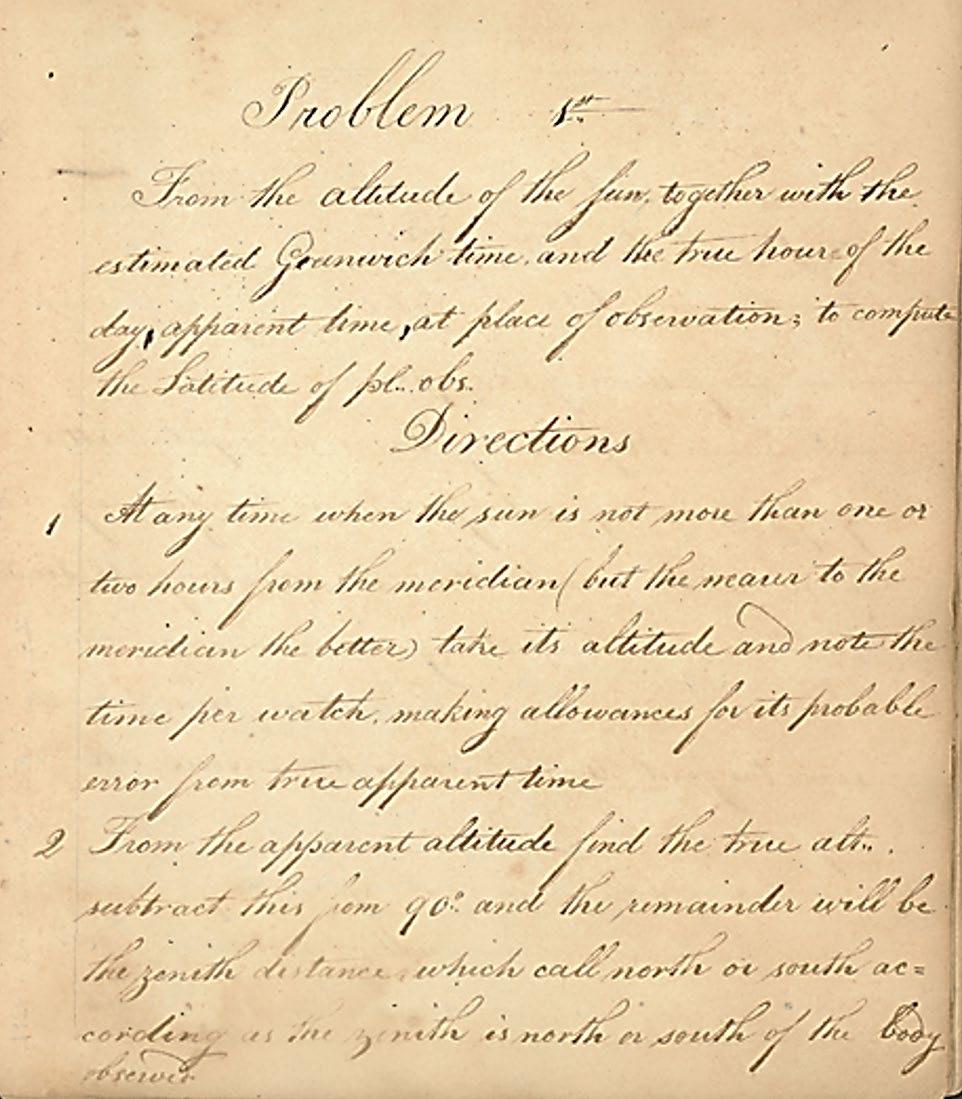 Problem 1st
From the altitude of the sun, together with the
estimated Greenwich time, and the true hour of the
day, apparent time, at place of observation; to compute
the Latitude of pl. obs.
Directions
1 At any time when the sun is not more than one or
two hours from the meridian (but the nearer to the
meridian the better) take its altitude and note the
time per watch, making allowances for its probable
error from true apparent time
2 From the apparent altitude find the true alt..
subtract this from 90° and the remainder will be
the zenith distance, which call north or south ac=
cording as the zenith is north or south of the body
observed